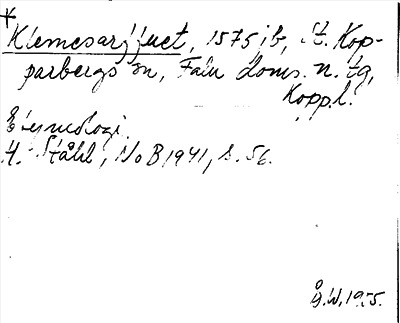 Klemesarfvet, 1575 jb, St. Kop-
parbergs sn, Falu doms. n. tg,
Koppl.
Etymologi.
H. Ståhl, NoB 1941, s. 56.